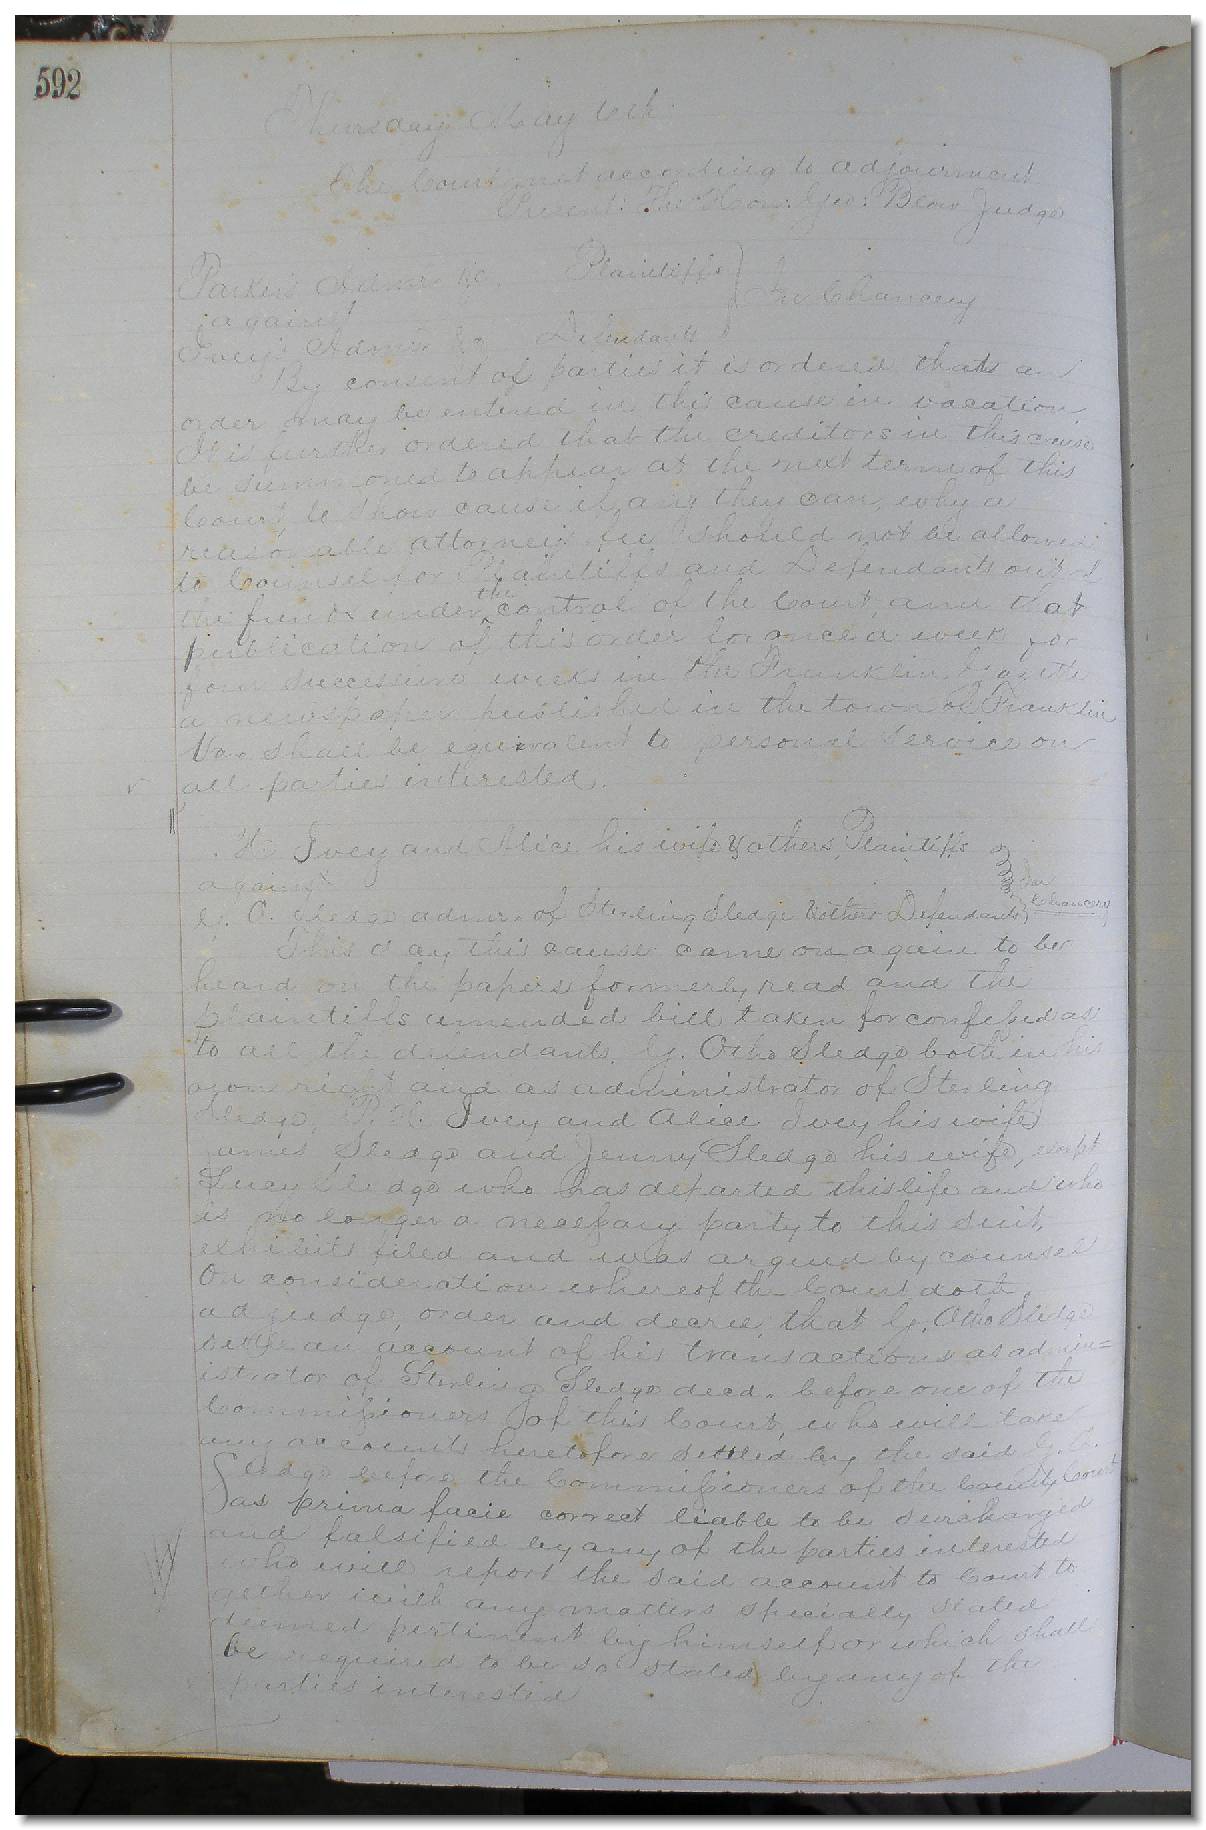 592
Thursday May 6th
The Court met according to adjournment
Present: The Hon: Geo: Blow Judge
Parker's Admr. &c. Plaintiffs
against In Chancery
Ivey's Admr. &c Defendants
By consent of parties it is ordered that an
order may be entered in this cause in vacation
It is further ordered that the creditors in this cause
be summoned to appear at the next term of this
Court to show cause if any they can, why a
reasonable attorney's fee should not be allowed
to Counsel for Plaintiffs and Defendants out of
the funds under the control of the Court, and that
publication of this order for once a week for
four successive weeks in the Franklin Gazette
a newspaper published in the town of Franklin
Va. shall be equivalent to personal service on
all parties interested.
Ivey and Alice his wife & others Plaintiffs
against In Chancery
O. Sledge admr. of Sterling Sledge & others Defendants
This day this cause came on again to be
heard on the papers formerly read and the
plaintiffs amended bill taken for confessed as
to all the defendants, G. Otho Sledge both in his
own right and as administrator of Sterling
Sledge, P. H. Ivey and Alice Ivey his wife
James Sledge and Jenny Sledge his wife, except
Lucy Sledge who has departed this life and who
is no longer a necessary party to this suit,
exhibits filed and was argued by counsel
On consideration whereof the Court doth
adjudge, order and decree, that G. Otho Sledge
settle an account of his transactions as admin=
istrator of Sterling Sledge decd. before one of the
Commissioners of this Court, who will take
any accounts heretofore settled by the said G. O.
Sledge before the Commissioners of the County Court
as prima facie correct liable to be surcharged
and falsified by any of the parties interested
who will report the said account to Court to
gether with any matters specially stated
deemed pertinent by himself or which shall
be required to be so stated by any of the
parties interested